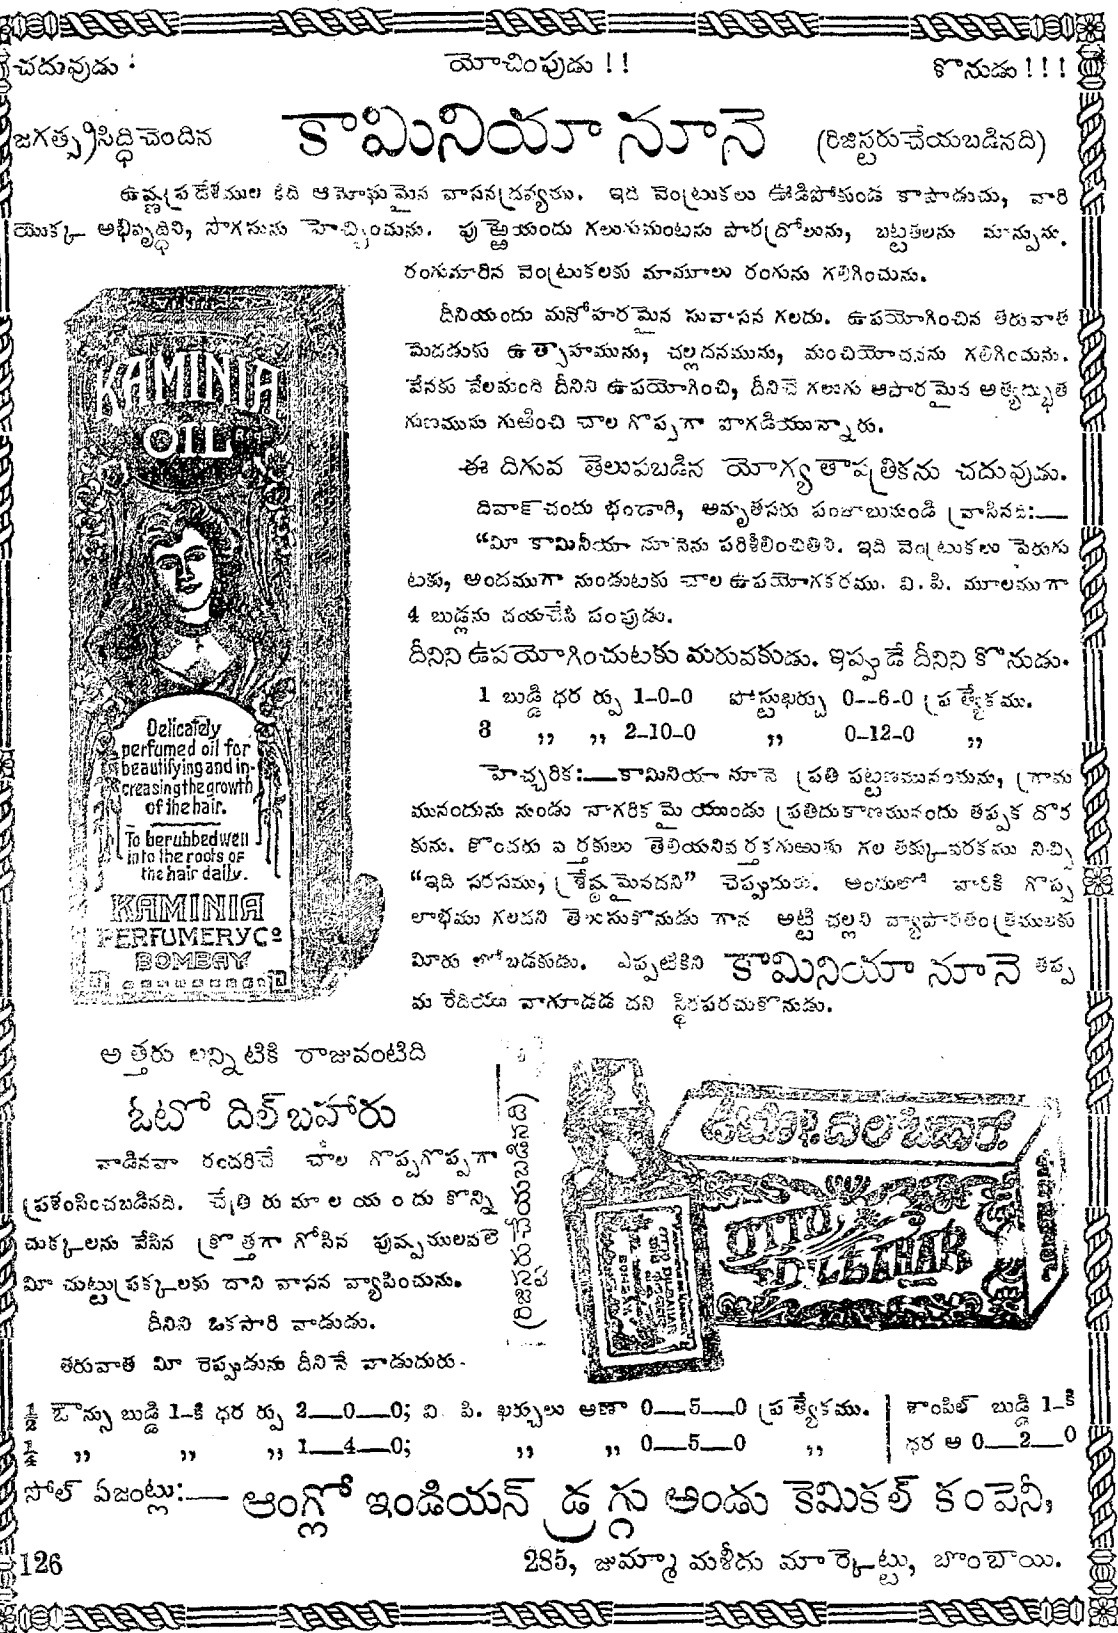 చదువుడు :
యోచింపుడు !!
కొనుడు !!!
జగత్ప్రసిద్ధి చెందిన
కామినియా నూనె
(రిజిస్టరు చేయబడినది)
ఉష్ణప్రదేశముల కిది ఆమోఘమైన వాసనద్రవ్యము. ఇది వెంట్రుకలు ఊడిపోకుండ కాపాడుచు, వారి
యొక్క అభివృద్ధిని, సొగసును హెచ్చించును. పుఱ్ఱెయందు గలుగుమంటను పారద్రోలును, బట్టతలను మాన్పును.
రంగుమారిన వెంట్రుకలకు మామూలు రంగును గలిగించును.
దీనియందు మనోహరమైన సువాసన గలదు. ఉపయోగించిన తరువాత
మెదడుకు ఉత్సాహమును, చల్లదనమును, మంచియోచనను గలిగించును.
వేనకు వేలమంది దీనిని ఉపయోగించి, దీనిచే గలుగు ఆపారమైన అత్యద్భుత
గుణమును గుఱించి చాల గొప్పగా పొగడియున్నారు.
ఈ దిగువ తెలుపబడిన యోగ్యతాపత్రికను చదువుడు.
దివాక్‌చందు భండారి, అమృతసరు పంజాబునుండి వ్రాసినది:—
“మీ కామినీయా నూనెను పరిశీలించితిని. ఇది వెంట్రుకలు పెరుగు
టకు, అందముగా నుండుటకు చాల ఉపయోగకరము. వి. పి. మూలముగా
4 బుడ్లను దయచేసి పంపుడు.
దీనిని ఉపయోగించుటకు మరువకుడు. ఇప్పుడే దీనిని కొనుడు.
1 బుడ్డి ధర ర్పు 1-0-0 పోస్టుఖర్చు 0--6-0 ప్రత్యేకము.
3 ,, ,, 2-10-0 ,, 0-12-0 ,,
హెచ్చరిక:—కామినియా నూనె ప్రతి పట్టణమునందును, గ్రామ
మునందును నుండు నాగరికమై యుండు ప్రతిదుకాణమునందు తప్పక దొర
కును. కొందరు వర్తకులు తెలియనివర్తకగుఱుతు గల తక్కువరకము నిచ్చి
“ఇది సరసము, శ్రేష్ఠమైనదని” చెప్పుదురు. అందులో వారికి గొప్ప
లాభము గలదని తెలుసుకొనుడు గాన అట్టి ఛల్లని వ్యాపారతంత్రములకు
మీరు లోబడకుడు. ఎప్పటికిని కామినియా నూనె తప్ప
మ రేదియు వాగూడద దని స్థిరపరచుకొనుడు.
KAMINIA
OIL
Delicately
perfumed oil for
beautifying and in-
creasing the growth
of the hair.
To be rubbed well
into the roots of
the hair daily.
KAMINIA
PERFUMERY Co
BOMBAY
అత్తరు లన్నిటికి రాజువంటిది
ఓటో దిల్‌బహారు
(రిజిస్టరు చేయబడినది)
వాడినవా రందరిచే చాల గొప్పగొప్పగా
ప్రశంసించబడినది. చేతి రుమాలయందు కొన్ని
చుక్కలను వేసిన క్రొత్తగా గోసిన పువ్వములవలె
మీ చుట్టుప్రక్కలకు దాని వాసన వ్యాపించును.
దీనిని ఒకసారి వాడుడు.
తరువాత మీ రెప్పుడును దీనినే వాడుదురు.
OTTO
DILBAHAR
½ ఔన్సు బుడ్డి 1-కి ధర ర్పు 2—0—0; వి. పి. ఖర్చులు అణా 0—5—0 ప్రత్యేకము.
¼ ,, ,, ,, 1—4—0; ,, ,, 0—5—0 ,,
శాంపిల్ బుడ్డి 1-కి
ధర అ 0—2—0
సోల్ ఏజంట్లు:— ఆంగ్లో ఇండియన్ డ్రగ్గు అండు కెమికల్ కంపెనీ,
126
285, జుమ్మా మశీదు మార్కెట్టు, బొంబాయి.